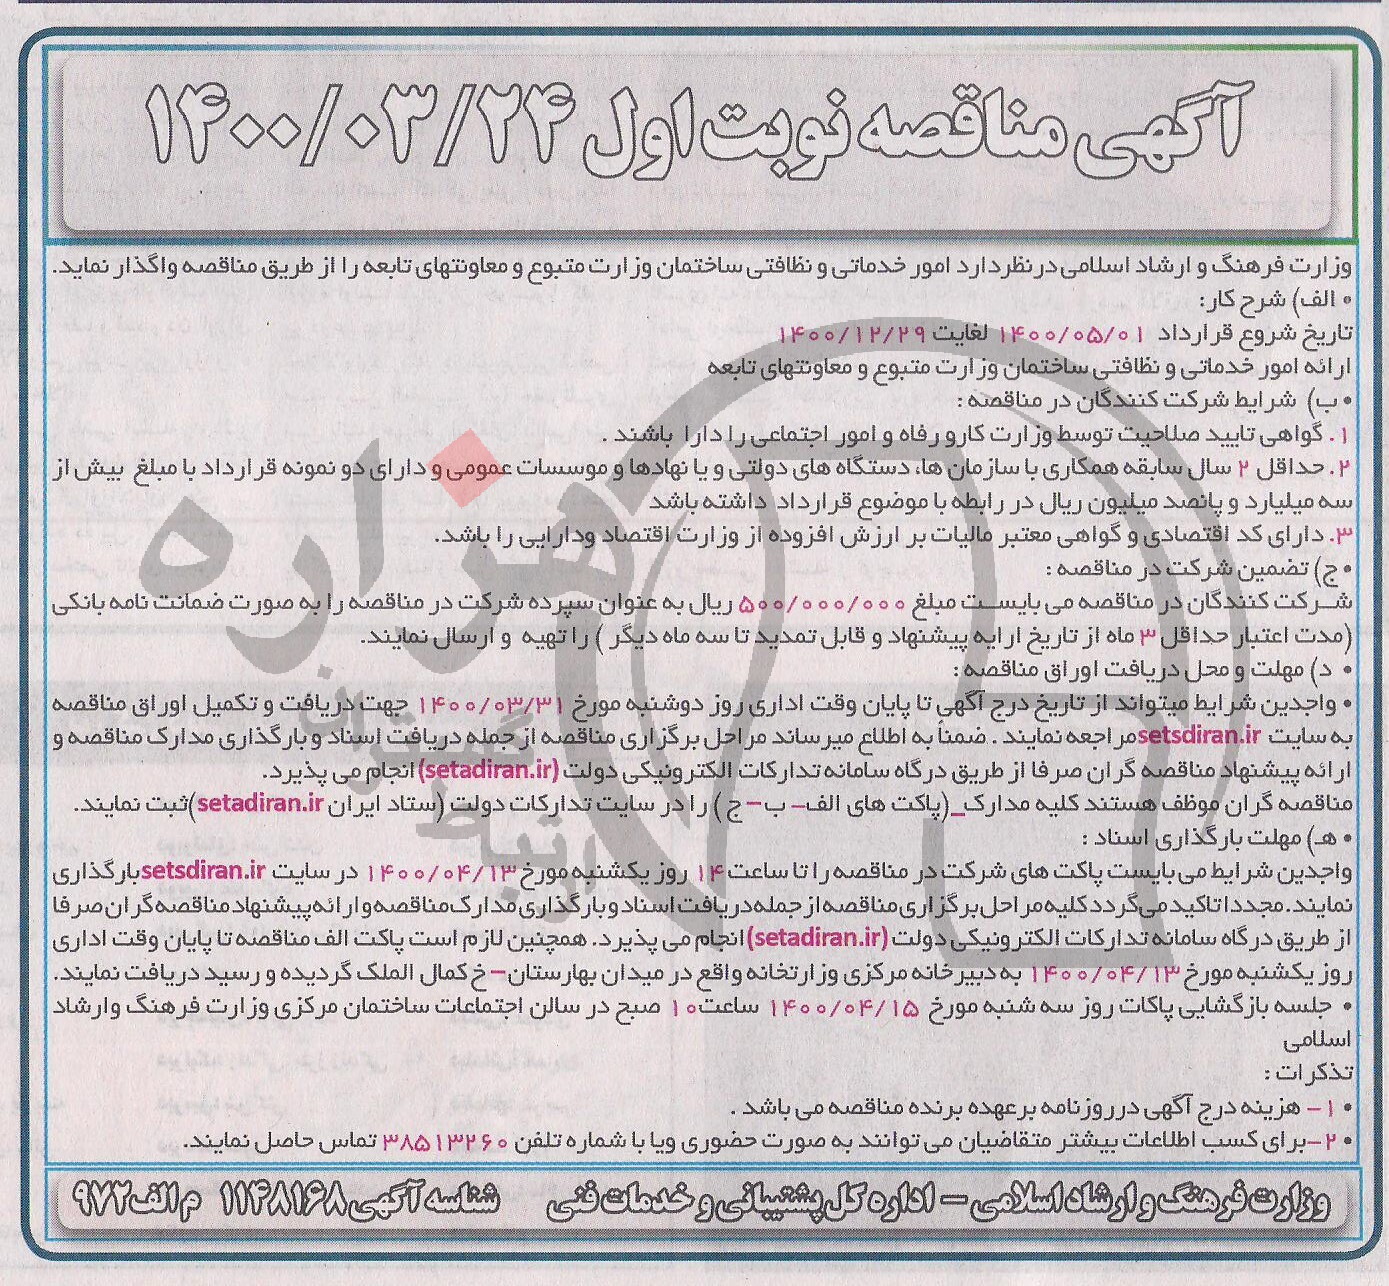 آگهی مناقصه نوبت اول ۱۴۰۰/۰۳/۲۴
وزارت فرهنگ و ارشاد اسلامی در نظر دارد امور خدماتی و نظافتی ساختمان وزارت متبوع و معاونتهای تابعه را از طریق مناقصه واگذار نماید.
• الف) شرح کار:
تاریخ شروع قرارداد ۱۴۰۰/۰۵/۰۱ لغایت ۱۴۰۰/۱۲/۲۹
ارائه امور خدماتی و نظافتی ساختمان وزارت متبوع و معاونتهای تابعه
• ب) شرایط شرکت کنندگان در مناقصه :
۱. گواهی تایید صلاحیت توسط وزارت کار و رفاه و امور اجتماعی را دارا باشند .
۲. حداقل ۲ سال سابقه همکاری با سازمان ها، دستگاه های دولتی و یا نهادها و موسسات عمومی و دارای دو نمونه قرارداد با مبلغ بیش از
سه میلیارد و پانصد میلیون ریال در رابطه با موضوع قرارداد داشته باشد
۳. دارای کد اقتصادی و گواهی معتبر مالیات بر ارزش افزوده از وزارت اقتصاد ودارایی را باشد.
• ج) تضمین شرکت در مناقصه :
شرکت کنندگان در مناقصه می بایست مبلغ ۵۰۰/۰۰۰/۰۰۰ ریال به عنوان سپرده شرکت در مناقصه را به صورت ضمانت نامه بانکی
(مدت اعتبار حداقل ۳ ماه از تاریخ ارایه پیشنهاد و قابل تمدید تا سه ماه دیگر ) را تهیه و ارسال نمایند.
• د) مهلت و محل دریافت اوراق مناقصه :
• واجدین شرایط میتواند از تاریخ درج آگهی تا پایان وقت اداری روز دوشنبه مورخ ۱۴۰۰/۰۳/۳۱ جهت دریافت و تکمیل اوراق مناقصه
به سایت setsdiran.ir مراجعه نمایند . ضمناً به اطلاع میرساند مراحل برگزاری مناقصه از جمله دریافت اسناد و بارگذاری مدارک مناقصه و
ارائه پیشنهاد مناقصه گران صرفا از طریق درگاه سامانه تدارکات الکترونیکی دولت (setadiran.ir) انجام می پذیرد.
مناقصه گران موظف هستند کلیه مدارک_(پاکت های الف– ب– ج ) را در سایت تدارکات دولت (ستاد ایران setadiran.ir) ثبت نمایند.
• هـ) مهلت بارگذاری اسناد :
واجدین شرایط می بایست پاکت های شرکت در مناقصه را تا ساعت ۱۴ روز یکشنبه مورخ ۱۴۰۰/۰۴/۱۳ در سایت setsdiran.ir بارگذاری
نمایند. مجددا تاکید می گردد کلیه مراحل برگزاری مناقصه از جمله دریافت اسناد و بارگذاری مدارک مناقصه و ارائه پیشنهاد مناقصه گران صرفا
از طریق درگاه سامانه تدارکات الکترونیکی دولت (setadiran.ir) انجام می پذیرد. همچنین لازم است پاکت الف مناقصه تا پایان وقت اداری
روز یکشنبه مورخ ۱۴۰۰/۰۴/۱۳ به دبیرخانه مرکزی وزارتخانه واقع در میدان بهارستان– خ کمال الملک گردیده و رسید دریافت نمایند.
• جلسه بازگشایی پاکات روز سه شنبه مورخ ۱۴۰۰/۰۴/۱۵ ساعت ۱۰ صبح در سالن اجتماعات ساختمان مرکزی وزارت فرهنگ وارشاد
اسلامی
تذکرات :
• ۱– هزینه درج آگهی در روزنامه بر عهده برنده مناقصه می باشد .
• ۲–برای کسب اطلاعات بیشتر متقاضیان می توانند به صورت حضوری ویا با شماره تلفن ۳۸۵۱۳۲۶۰ تماس حاصل نمایند.
وزارت فرهنگ و ارشاد اسلامی – اداره کل پشتیبانی و خدمات فنی شناسه آگهی ۱۱۴۸۱۶۸ م الف ۹۷۳
هزاره
گستران
ارتباط